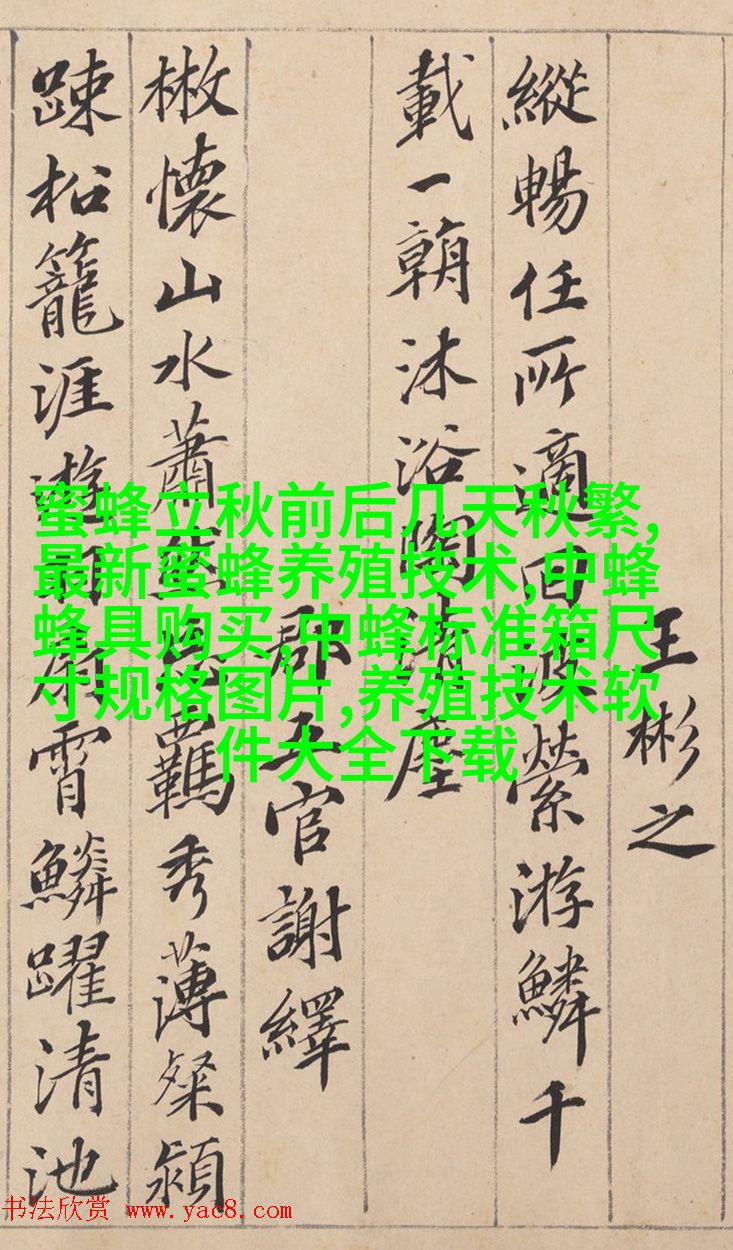 王彬之
縱暢任所適回波縈游鱗千
載一朝沐浴陶清塵
郡五官謝繹
散懷山水蕭然忘羈秀薄粲穎
踈松籠涯遊羽扇霄鱗躍清池
蜜蜂立秋前后几天秋繁,
最新蜜蜂养殖技术,中蜂
蜂具购买,中蜂标准箱尺
寸规格图片,养殖技术软
件大全下载
书法欣赏 www.yac8.com